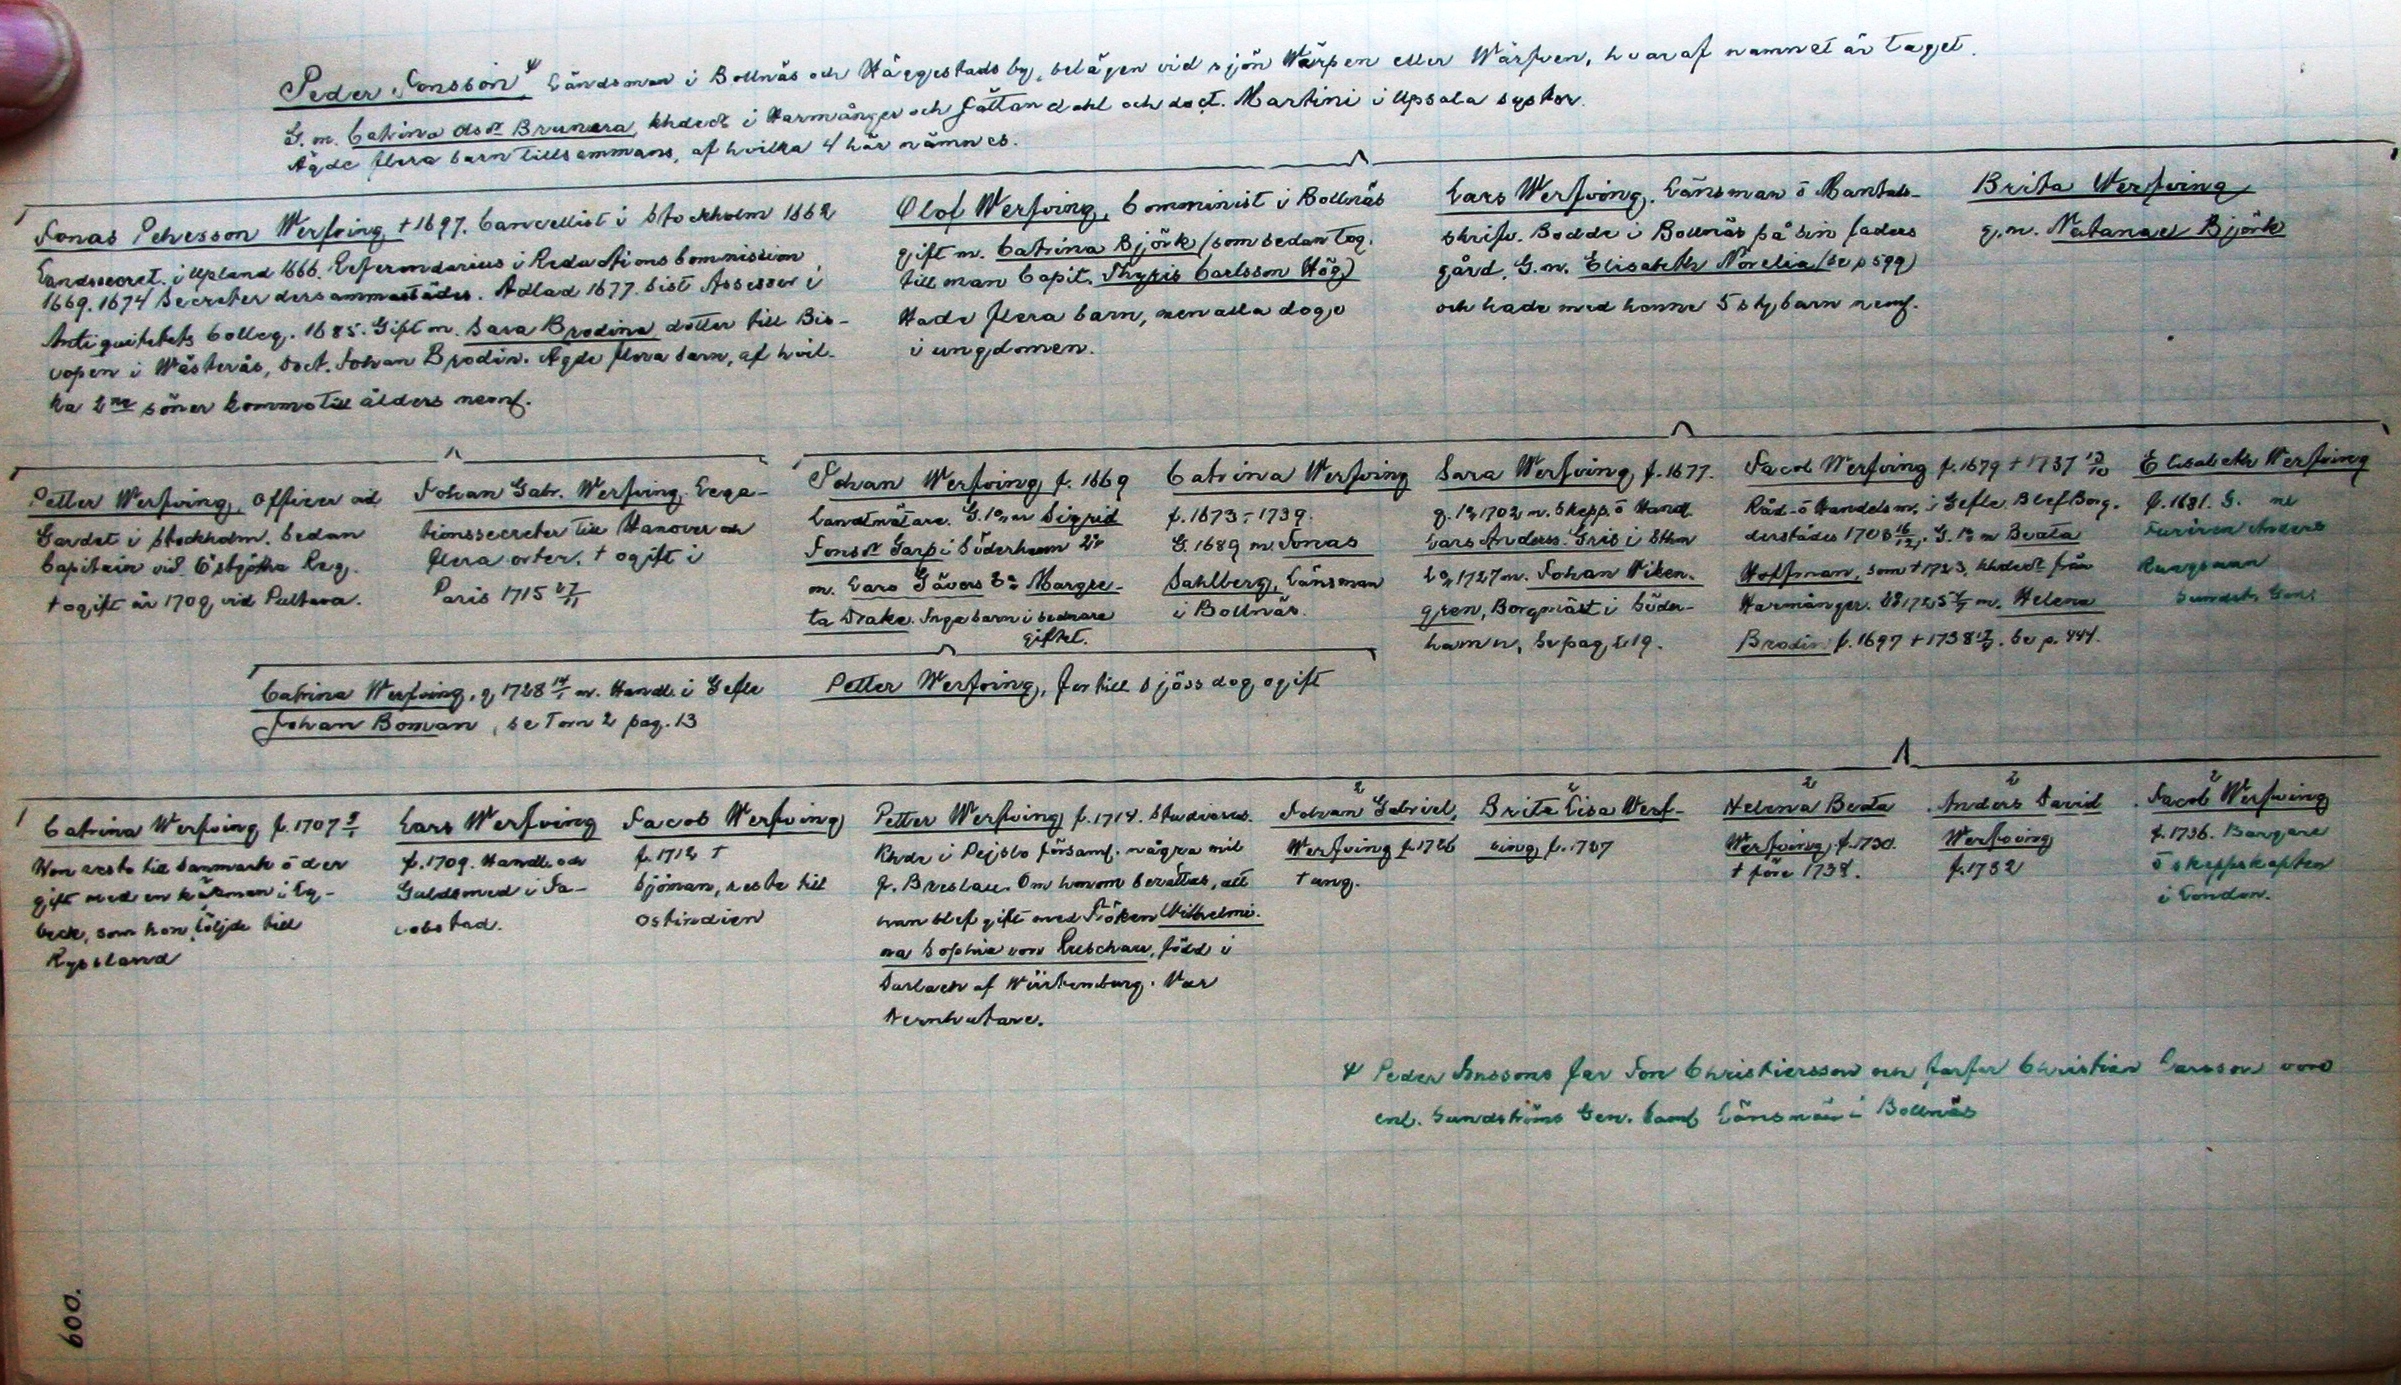 Peder Jonsson Ψ, Ländsman i Bollnäs och Häggestads by, belägen vid sjön Wärpen eller Wärfven, hvaraf namnet är taget.
G. m. Catrina dsdr Brunera, khdedr i Harmånger och Jättendahl och doct. Martini i Upsala syster.
Ägde flera barn tillsammans, af hvilka 4 här nämnes.
Jonas Pehrsson Werfving +1697. Cancellist i Stockholm 1662
Landssecret. i Upland 1666. Referendarius i Reductions Commission
1669. 1674 Secreter dersammastädes. Adlad 1677. Sist Assessor i
Antiquitets Colleg. 1685. Gift m. Sara Brodina, dotter till Bis-
copen i Wästerås, Doct. Johan Brodin. Ägde flera barn, af hvil-
ka 2ne söner kommo till ålders neml.
Olof Werfving, Comminist i Bollnäs
gift m. Catrina Björk (som sedan tog
till man Capit. Thyris Carlsson Hög)
Hade flera barn, men alla dogo
i ungdomen.
Lars Werfving. Länsman o Mantals-
skrifv. Bodde i Bollnäs på sin faders
gård. G. m. Elisabeth Norelia (se p 599)
och hade med henne 5 st. barn neml.
Brita Werfving
g. m. Natanael Björk
Petter Werfving, Officer vid
Gardet i Stockholm. Sedan
Capitain vid Östgötha Reg.
+ ogift år 1709 vid Pultava.
Johan Gabr. Werfving. Lega-
tionssecreter till Hanover och
flera orter. + ogift i
Paris 1715 27/11
Johan Werfving f. 1669
Landtmätare. G. 1o m Sigrid
Jonsdr Garp i Söderhamn 2o
m. Cars Gävers 3o Margre-
ta Drake. Inga barn i sednare
giftet.
Catrina Werfving
f. 1673 - 1739.
G. 1689 m. Jonas
Dahlberg, Länsman
i Bollnäs.
Sara Werfving f. 1677.
g. 1o 1702 m. Skepp. o Handl
Lars Anderss. Gris i Sthm
2o 1727 m. Johan Wiken-
gren, Borgmäst i Söder-
hamn, Se pag. 219.
Jacob Werfving f. 1679 + 1737 13/10
Råd- o Handelsm. i Gefle. Blef Borg.
derstädes 1708 16/12. G. 1o m Beata
Hoffman, som + 1723, khdedr från
Harmånger. 2o 1725 m. Helena
Brodin f. 1697 + 1738. Se p. 444.
Elisabeth Werfving
f. 1681. G. m
Furiren Anders
Sundstr. Gens
Catrina Werfving, g 1728 14/1 m. Handl. i Gefle
Johan Boman, se Tom 2 pag. 13
Petter Werfving, for till sjöss dog ogift
Catrina Werfving f. 1707
Hon reste till Danmark o der
gift med en köpman i Ly-
beck, som hon följde till
Ryssland
Lars Werfving
f. 1709. Handl. och
Guldsmed i Ja-
cobstad.
Jacob Werfving
f. 1712 +
Sjöman, reste till
Ostindien
Petter Werfving f. 1714. Studiosus.
Khde i Pejslo församl. några mil
fr. Breslau. Om honom berättas, att
han blef gift med Fröken Wilhelmi-
na Sophia von Luschau, född i
Durlach af Würtemburg. Var
Hernhutare.
2
Johan Gabriel
Werfving f. 1726
+ ung.
2
Brita Lisa Werf-
ving f. 1727
2
Helena Beata
Werfving f. 1730.
+ före 1738.
2
Anders David
Werfving
f. 1732
2
Jacob Werfving
f. 1736. Borgare
o skeppskapten
i London.
Ψ Peder Jonssons far Jon Christiersson och farfar Christian Larsson voro
enl. Sundströms Gen. Saml Länsmän i Bollnäs
600.